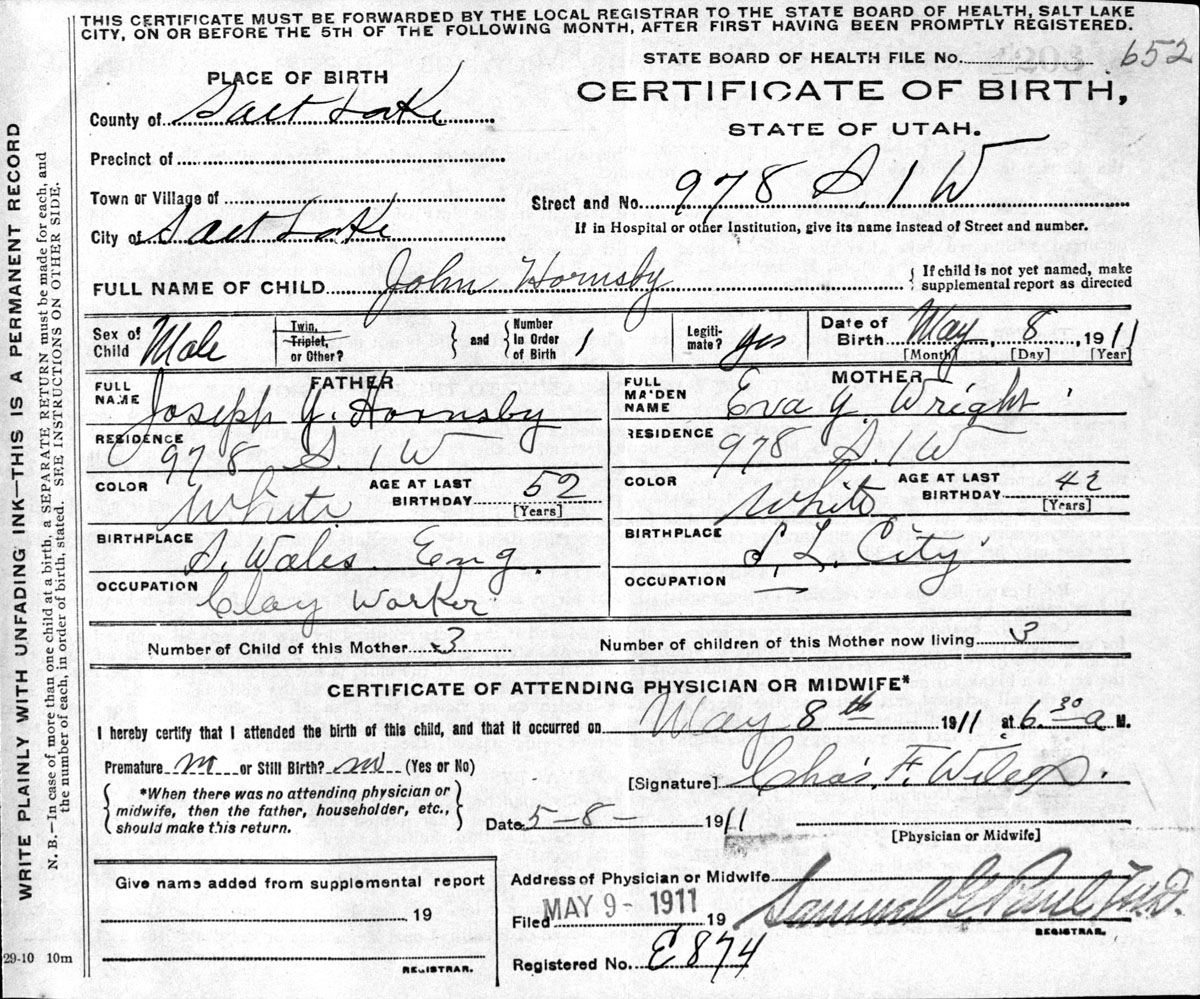 THIS CERTIFICATE MUST BE FORWARDED BY THE LOCAL REGISTRAR TO THE STATE BOARD OF HEALTH, SALT LAKE
CITY, ON OR BEFORE THE 5TH OF THE FOLLOWING MONTH, AFTER FIRST HAVING BEEN PROMPTLY REGISTERED.
WRITE PLAINLY WITH UNFADING INK—THIS IS A PERMANENT RECORD
N. B.—In case of more than one child at a birth, a SEPARATE RETURN must be made for each, and
the number of each, in order of birth, stated. SEE INSTRUCTIONS ON OTHER SIDE.
STATE BOARD OF HEALTH FILE No. 652
PLACE OF BIRTH
CERTIFICATE OF BIRTH,
STATE OF UTAH.
County of Salt Lake
Precinct of
Town or Village of
Street and No. 978 S. 1 W
City of Salt Lake
If in Hospital or other Institution, give its name instead of Street and number.
FULL NAME OF CHILD John Hornsby
If child is not yet named, make
supplemental report as directed
Sex of
Child Male
Twin,
Triplet,
or Other?
and
Number
in Order
of Birth 1
Legiti-
mate? yes
Date of
Birth May 8, 1911
[Month] [Day] [Year]
FATHER
FULL
NAME Joseph Y. Hornsby
RESIDENCE
978 S. 1 W
COLOR White
AGE AT LAST
BIRTHDAY 52
[Years]
BIRTHPLACE
S. Wales Eng.
OCCUPATION
Clay Worker
MOTHER
FULL
MAIDEN
NAME Eva Y. Wright
RESIDENCE
978 S. 1 W
COLOR White
AGE AT LAST
BIRTHDAY 42
[Years]
BIRTHPLACE
S. L. City
OCCUPATION
Number of Child of this Mother 3
Number of children of this Mother now living 3
CERTIFICATE OF ATTENDING PHYSICIAN OR MIDWIFE*
I hereby certify that I attended the birth of this child, and that it occurred on May 8th 1911 at 6 30 a M.
Premature no or Still Birth? no (Yes or No)
[Signature] Chas. F. Wilcox.
*When there was no attending physician or
midwife, then the father, householder, etc.,
should make this return.
Date 5-8- 1911
[Physician or Midwife]
Give name added from supplemental report
19
REGISTRAR.
Address of Physician or Midwife
Filed MAY 9- 1911 19
Samuel G. Paul M.D.
REGISTRAR.
Registered No. E874
29-10 10m